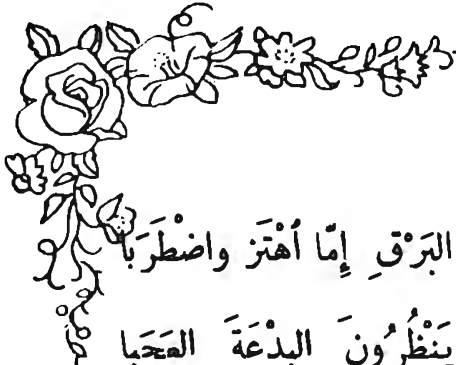 البَرْقِ إِمّا اُهْتَز واضْطَرَبا
يَنْظُرُونَ البِدْعَةَ العَجَبا